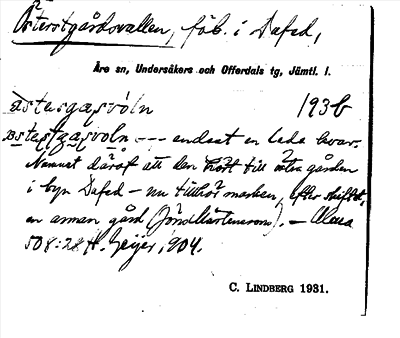 Österstgårdsvallen, fäb. i Dafed,
Åre sn, Undersåkers och Offerdals tg, Jämtl. l.
àstergaṣvòln 193b
östeṣtgaṣvoln --- endast en lada kvar.
Namnet däraf att den hört till östra gården
i byn Dafed – nu tillhör marken, efter skiftet,
en annan gård (Jöndhårtensrom). – Olena
508:28 H. Geijer, 1904.
C. LINDBERG 1931.